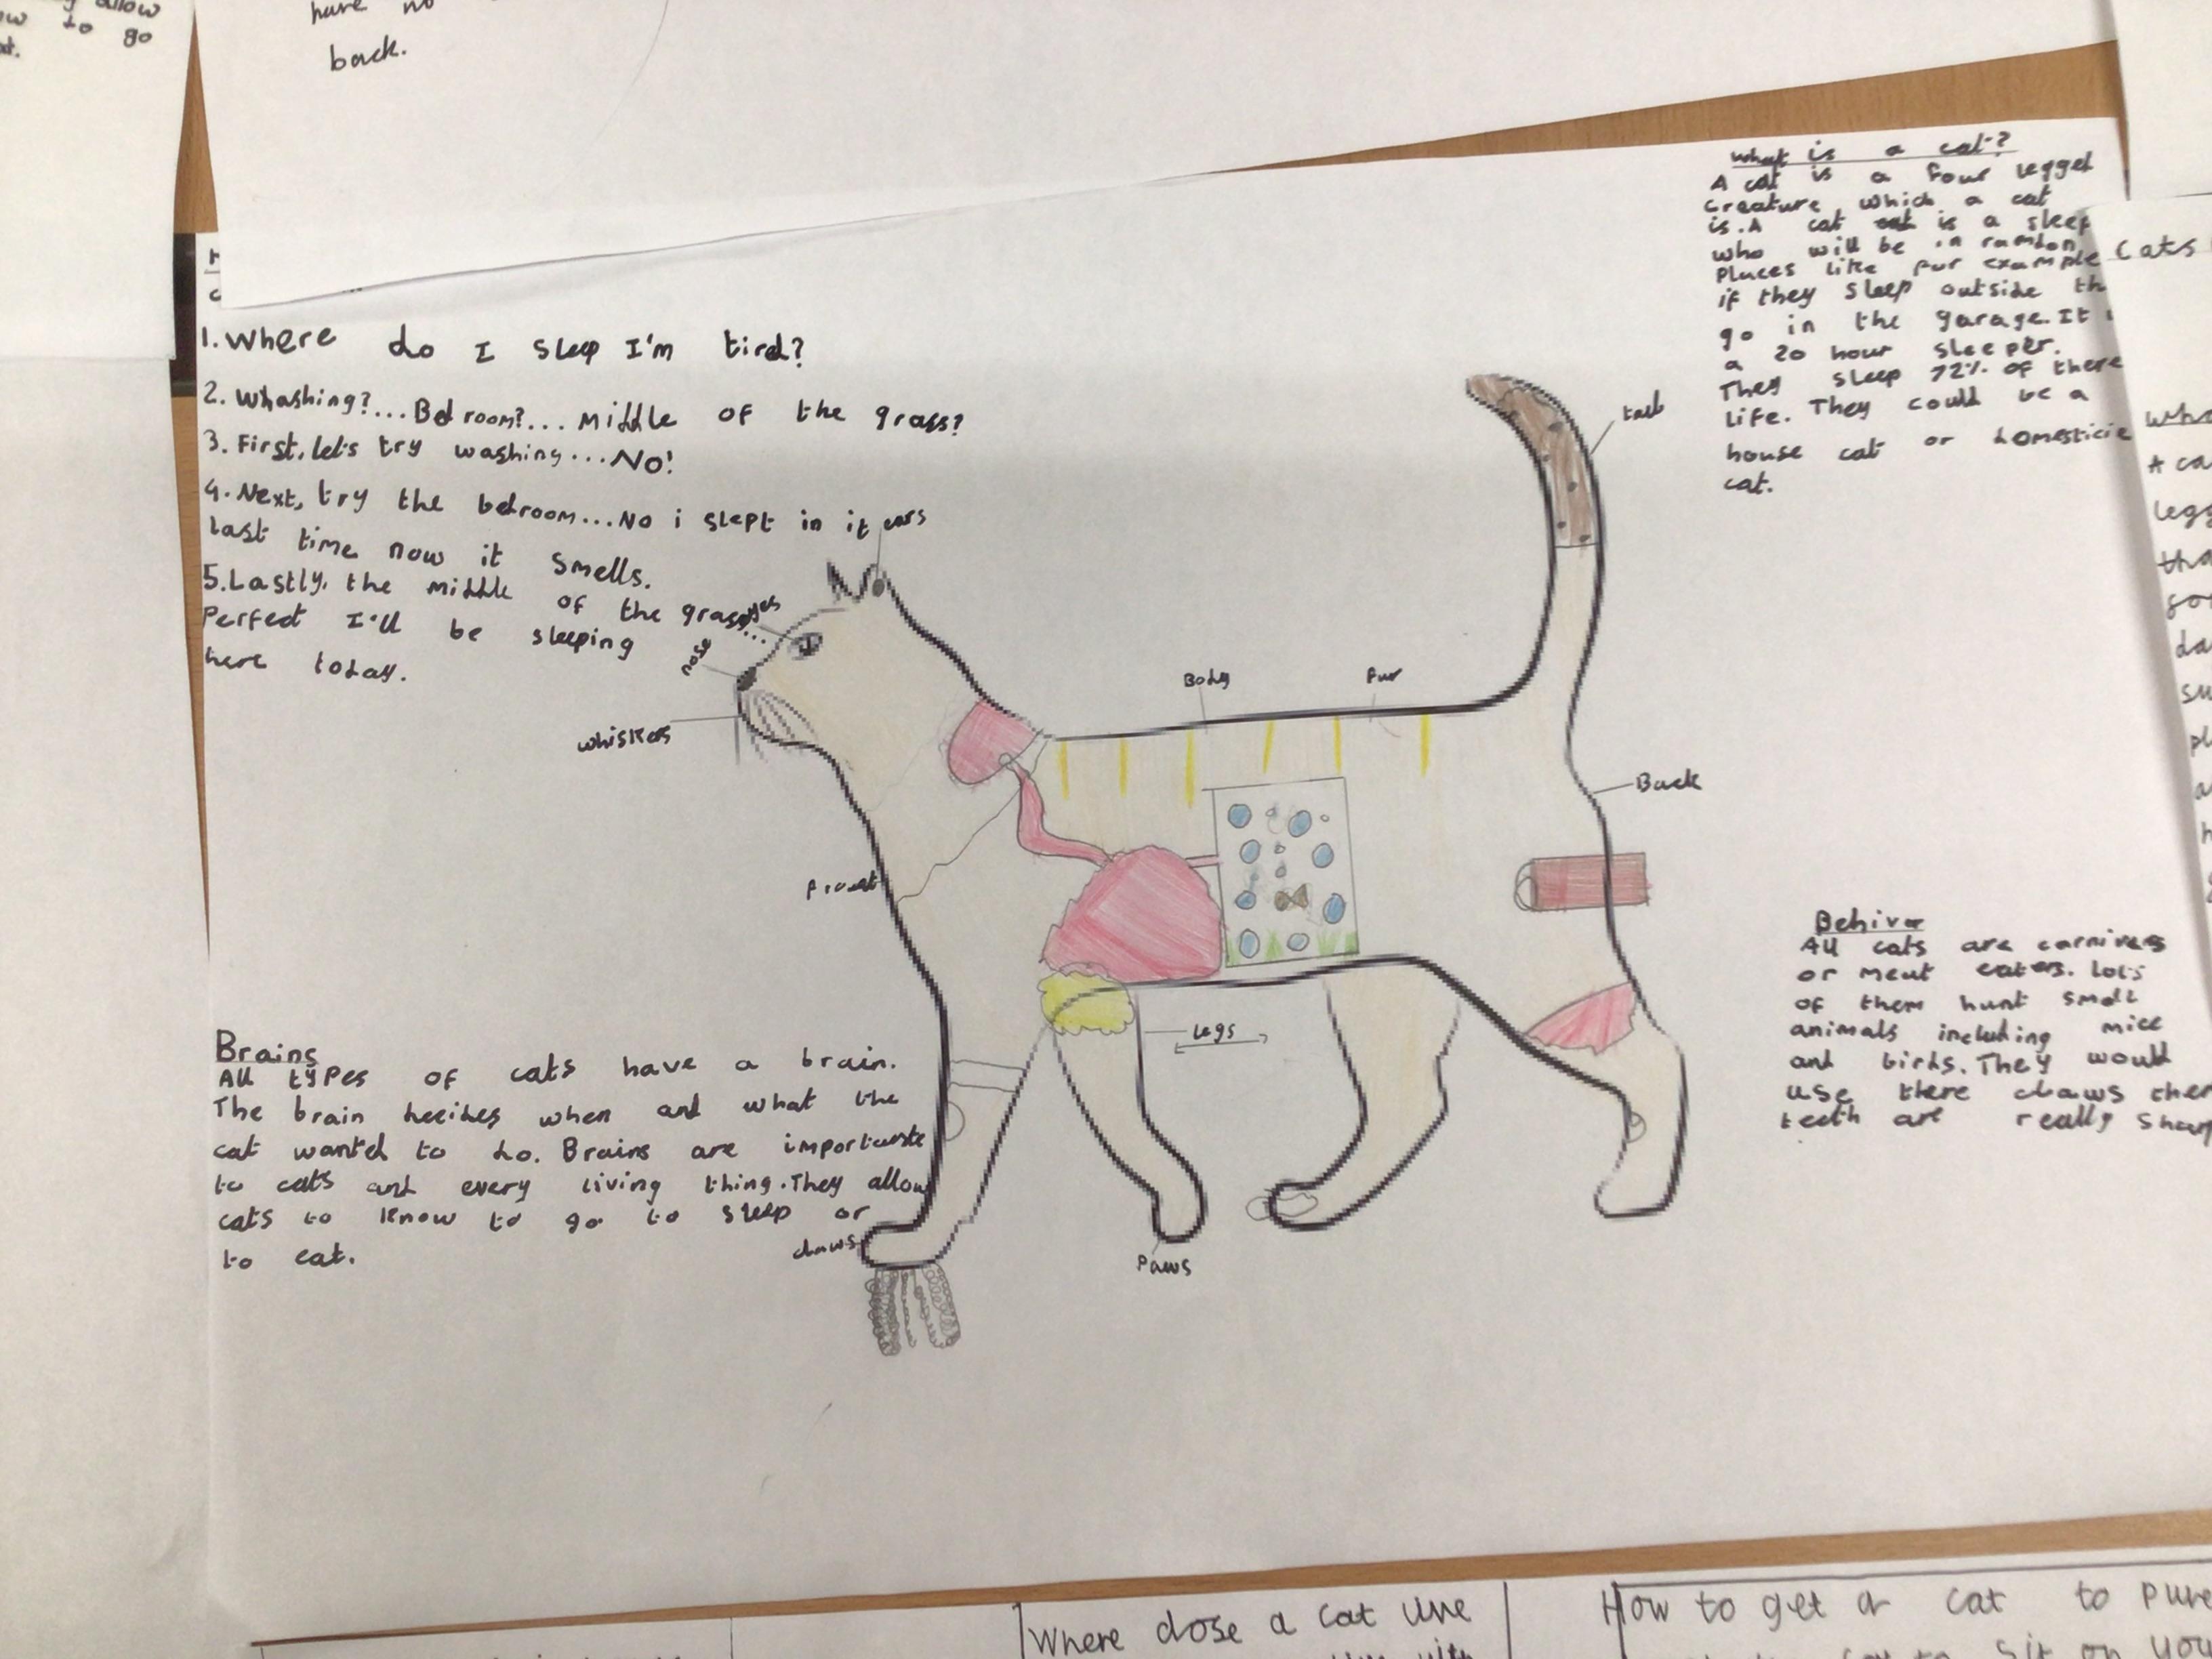 allow
to go
have no
back.
1. Where do I sleep I'm tird?
2. Whashing?...Bedroom?... Middle of the grass?
3. First, let's try washing...No!
4. Next, try the bedroom...No i slept in it
last time now it smells.
5. Lastly, the middle of the grass...
Perfect I'll be sleeping
here today.
ears
eyes
nose
whiskers
Body
fur
tail
Back
Legs
claws
Paws
Brains
All types of cats have a brain.
The brain decides when and what the
cat wanted to do. Brains are importante
to cats and every living thing. They allow
cats to know to go to sleep or
to eat.
What is a cat?
A cat is a four legged
creature which a cat
is. A cat is a sleep
who will be in ramdon
places like fur example
if they sleep outside th
go in the garage. It
a 20 hour sleeper.
They sleep 72% of there
life. They could be a
house cat or domesticie
cat.
Behivor
All cats are carnivers
or meat eaters. Lots
of them hunt small
animals including mice
and birds. They would
use there claws ther
teeth are really sharp
Cats
Wha
A ca
legg
tha
Where dose a cat
How to get a cat to pure
sit on you